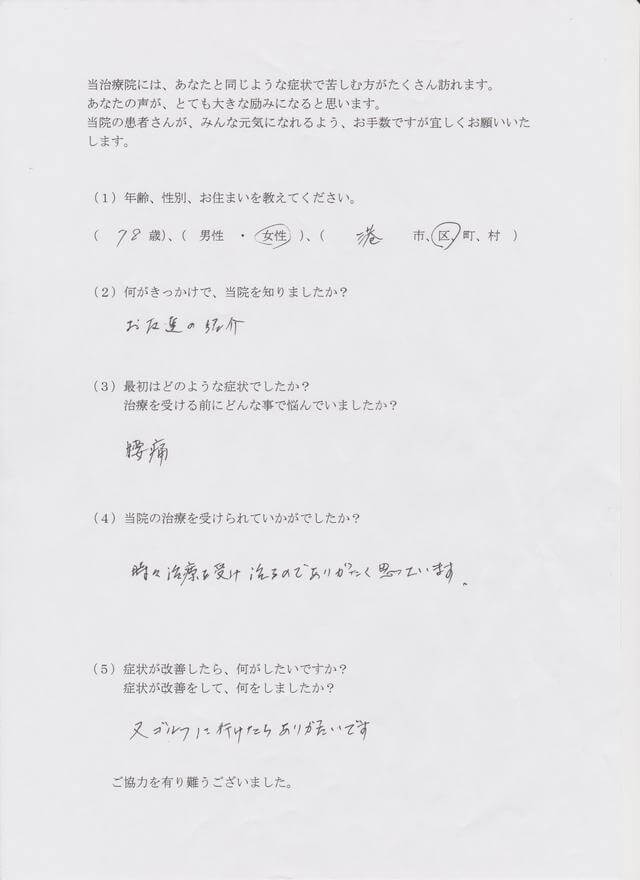 当治療院には、あなたと同じような症状で苦しむ方がたくさん訪れます。
あなたの声が、とても大きな励みになると思います。
当院の患者さんが、みんな元気になれるよう、お手数ですが宜しくお願いいた
します。
（１）年齢、性別、お住まいを教えてください。
（ 78 歳）、（ 男性 ・ 女性 ）、（ 港 市、区、町、村 ）
（２）何がきっかけで、当院を知りましたか？
お友達の紹介
（３）最初はどのような症状でしたか？
治療を受ける前にどんな事で悩んでいましたか？
腰痛
（４）当院の治療を受けられていかがでしたか？
時々治療を受け治るのでありがたく思っています。
（５）症状が改善したら、何がしたいですか？
症状が改善をして、何をしましたか？
又ゴルフに行けたらありがたいです
ご協力を有り難うございました。